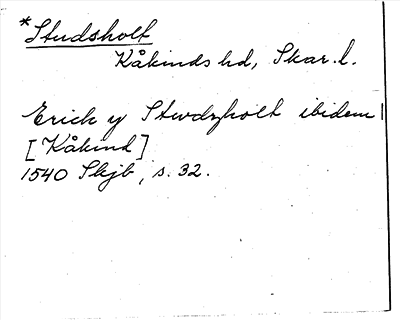 *Studsholt
Kåkinds hd, Skar. l.
Erich y Stwdzholt ibidem
[Kåkind]
1540 Skjb, s. 32.